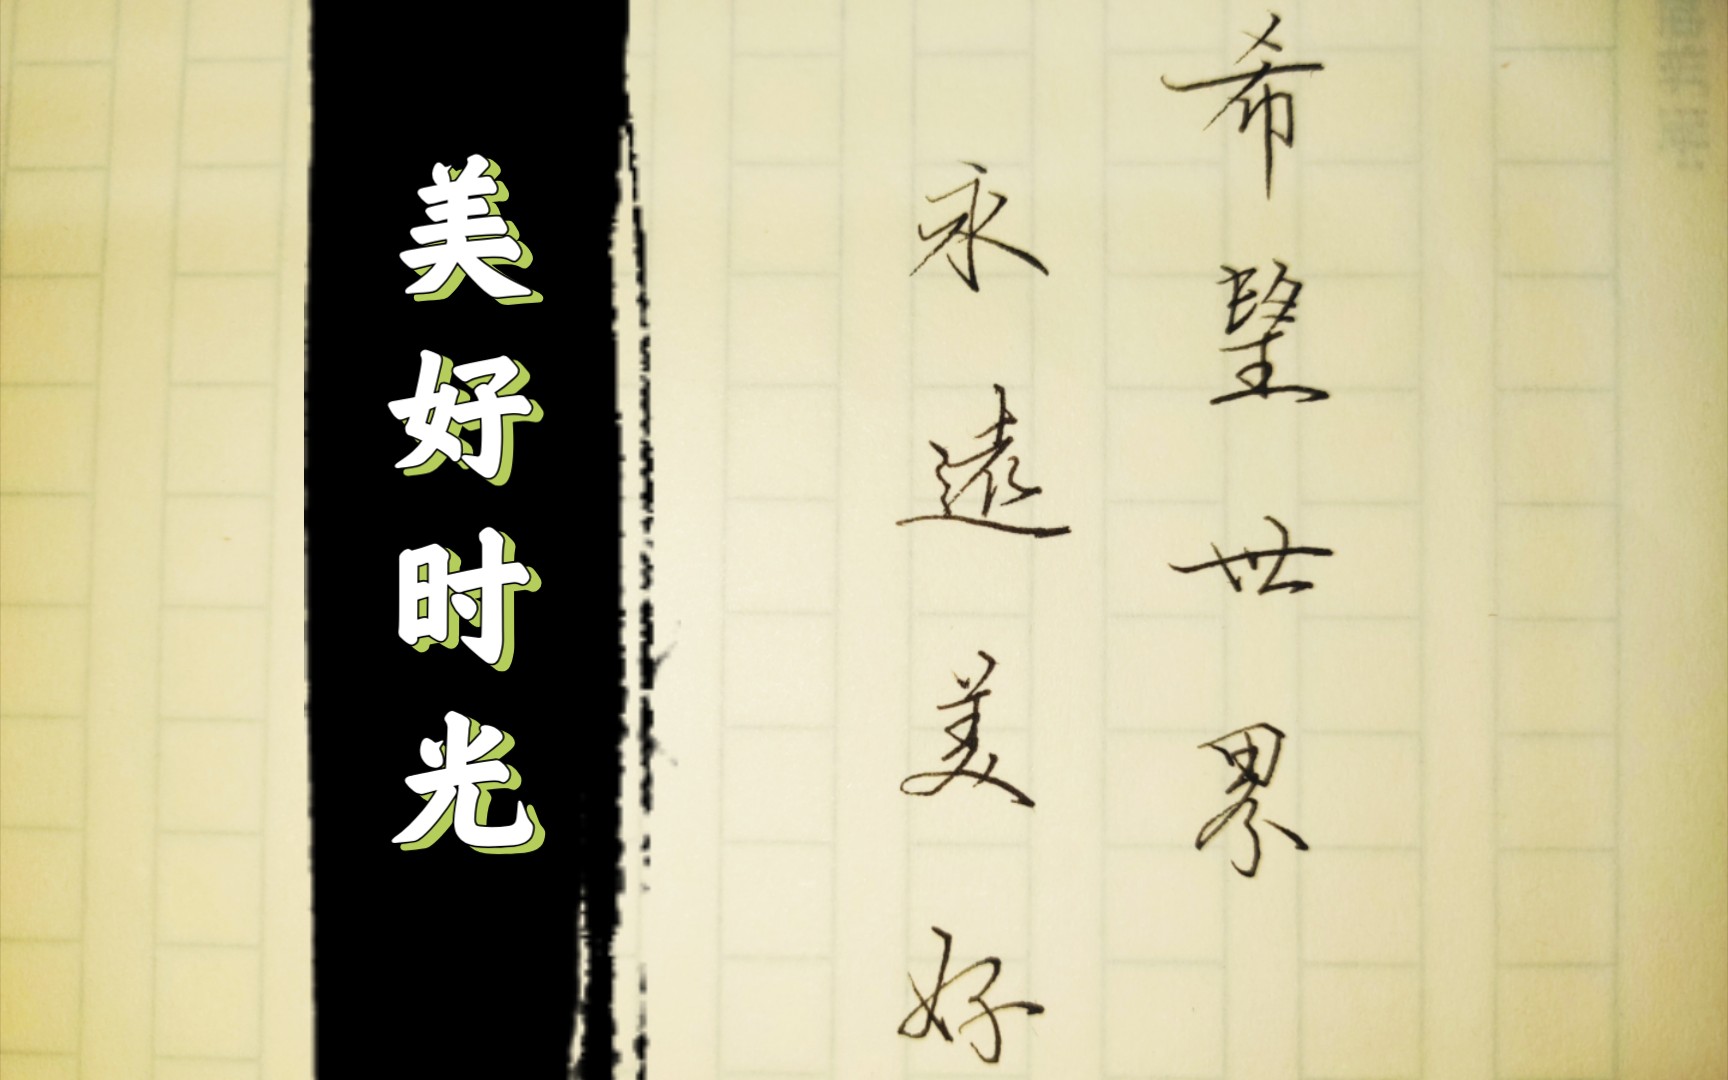 希望世界
永遠美好
美好时光